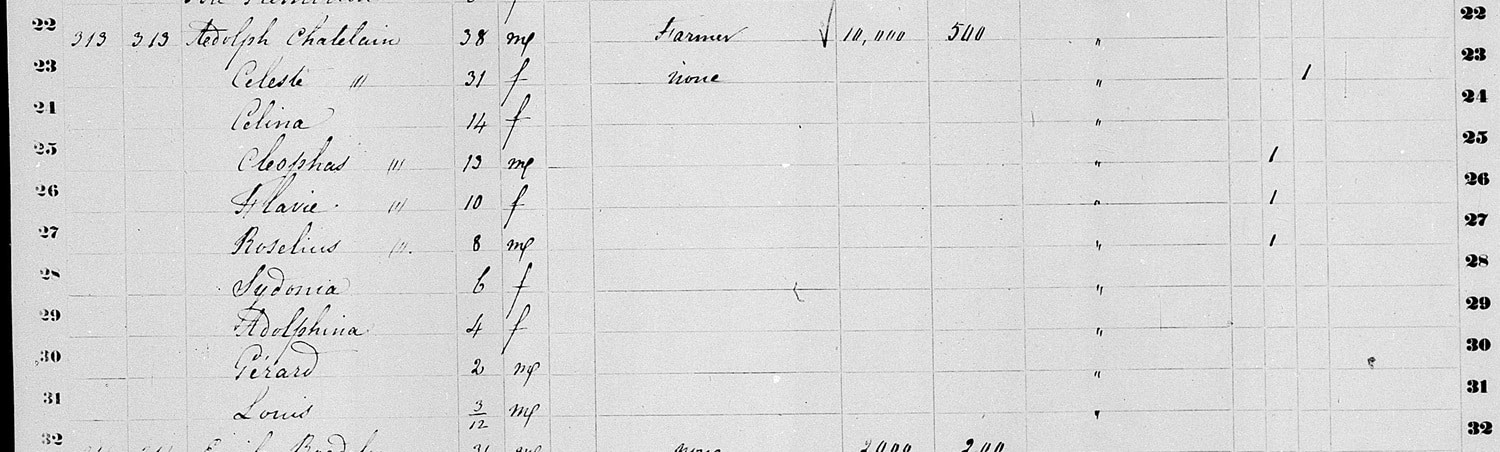 22 313 313 Adolph Chatelain 38 m Farmer 10,000 500 " 22
23 Celeste " 31 f none " 1 23
24 Celina 14 f " 24
25 Cleophas " 13 m " 1 25
26 Flavie " 10 f " 1 26
27 Roselius " 8 m " 1 27
28 Sydonia 6 f " 28
29 Adolphina 4 f " 29
30 Gérard 2 m " 30
31 Louis 3/12 m " 31
32 none 2000 200 32